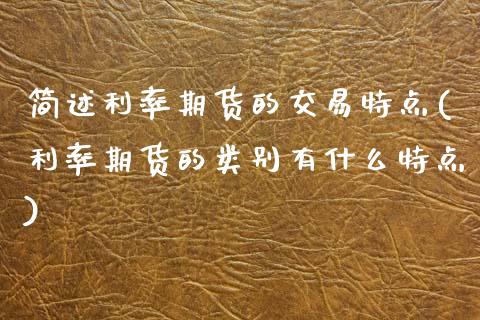 简述利率期货的交易特点(
利率期货的类别有什么特点
)